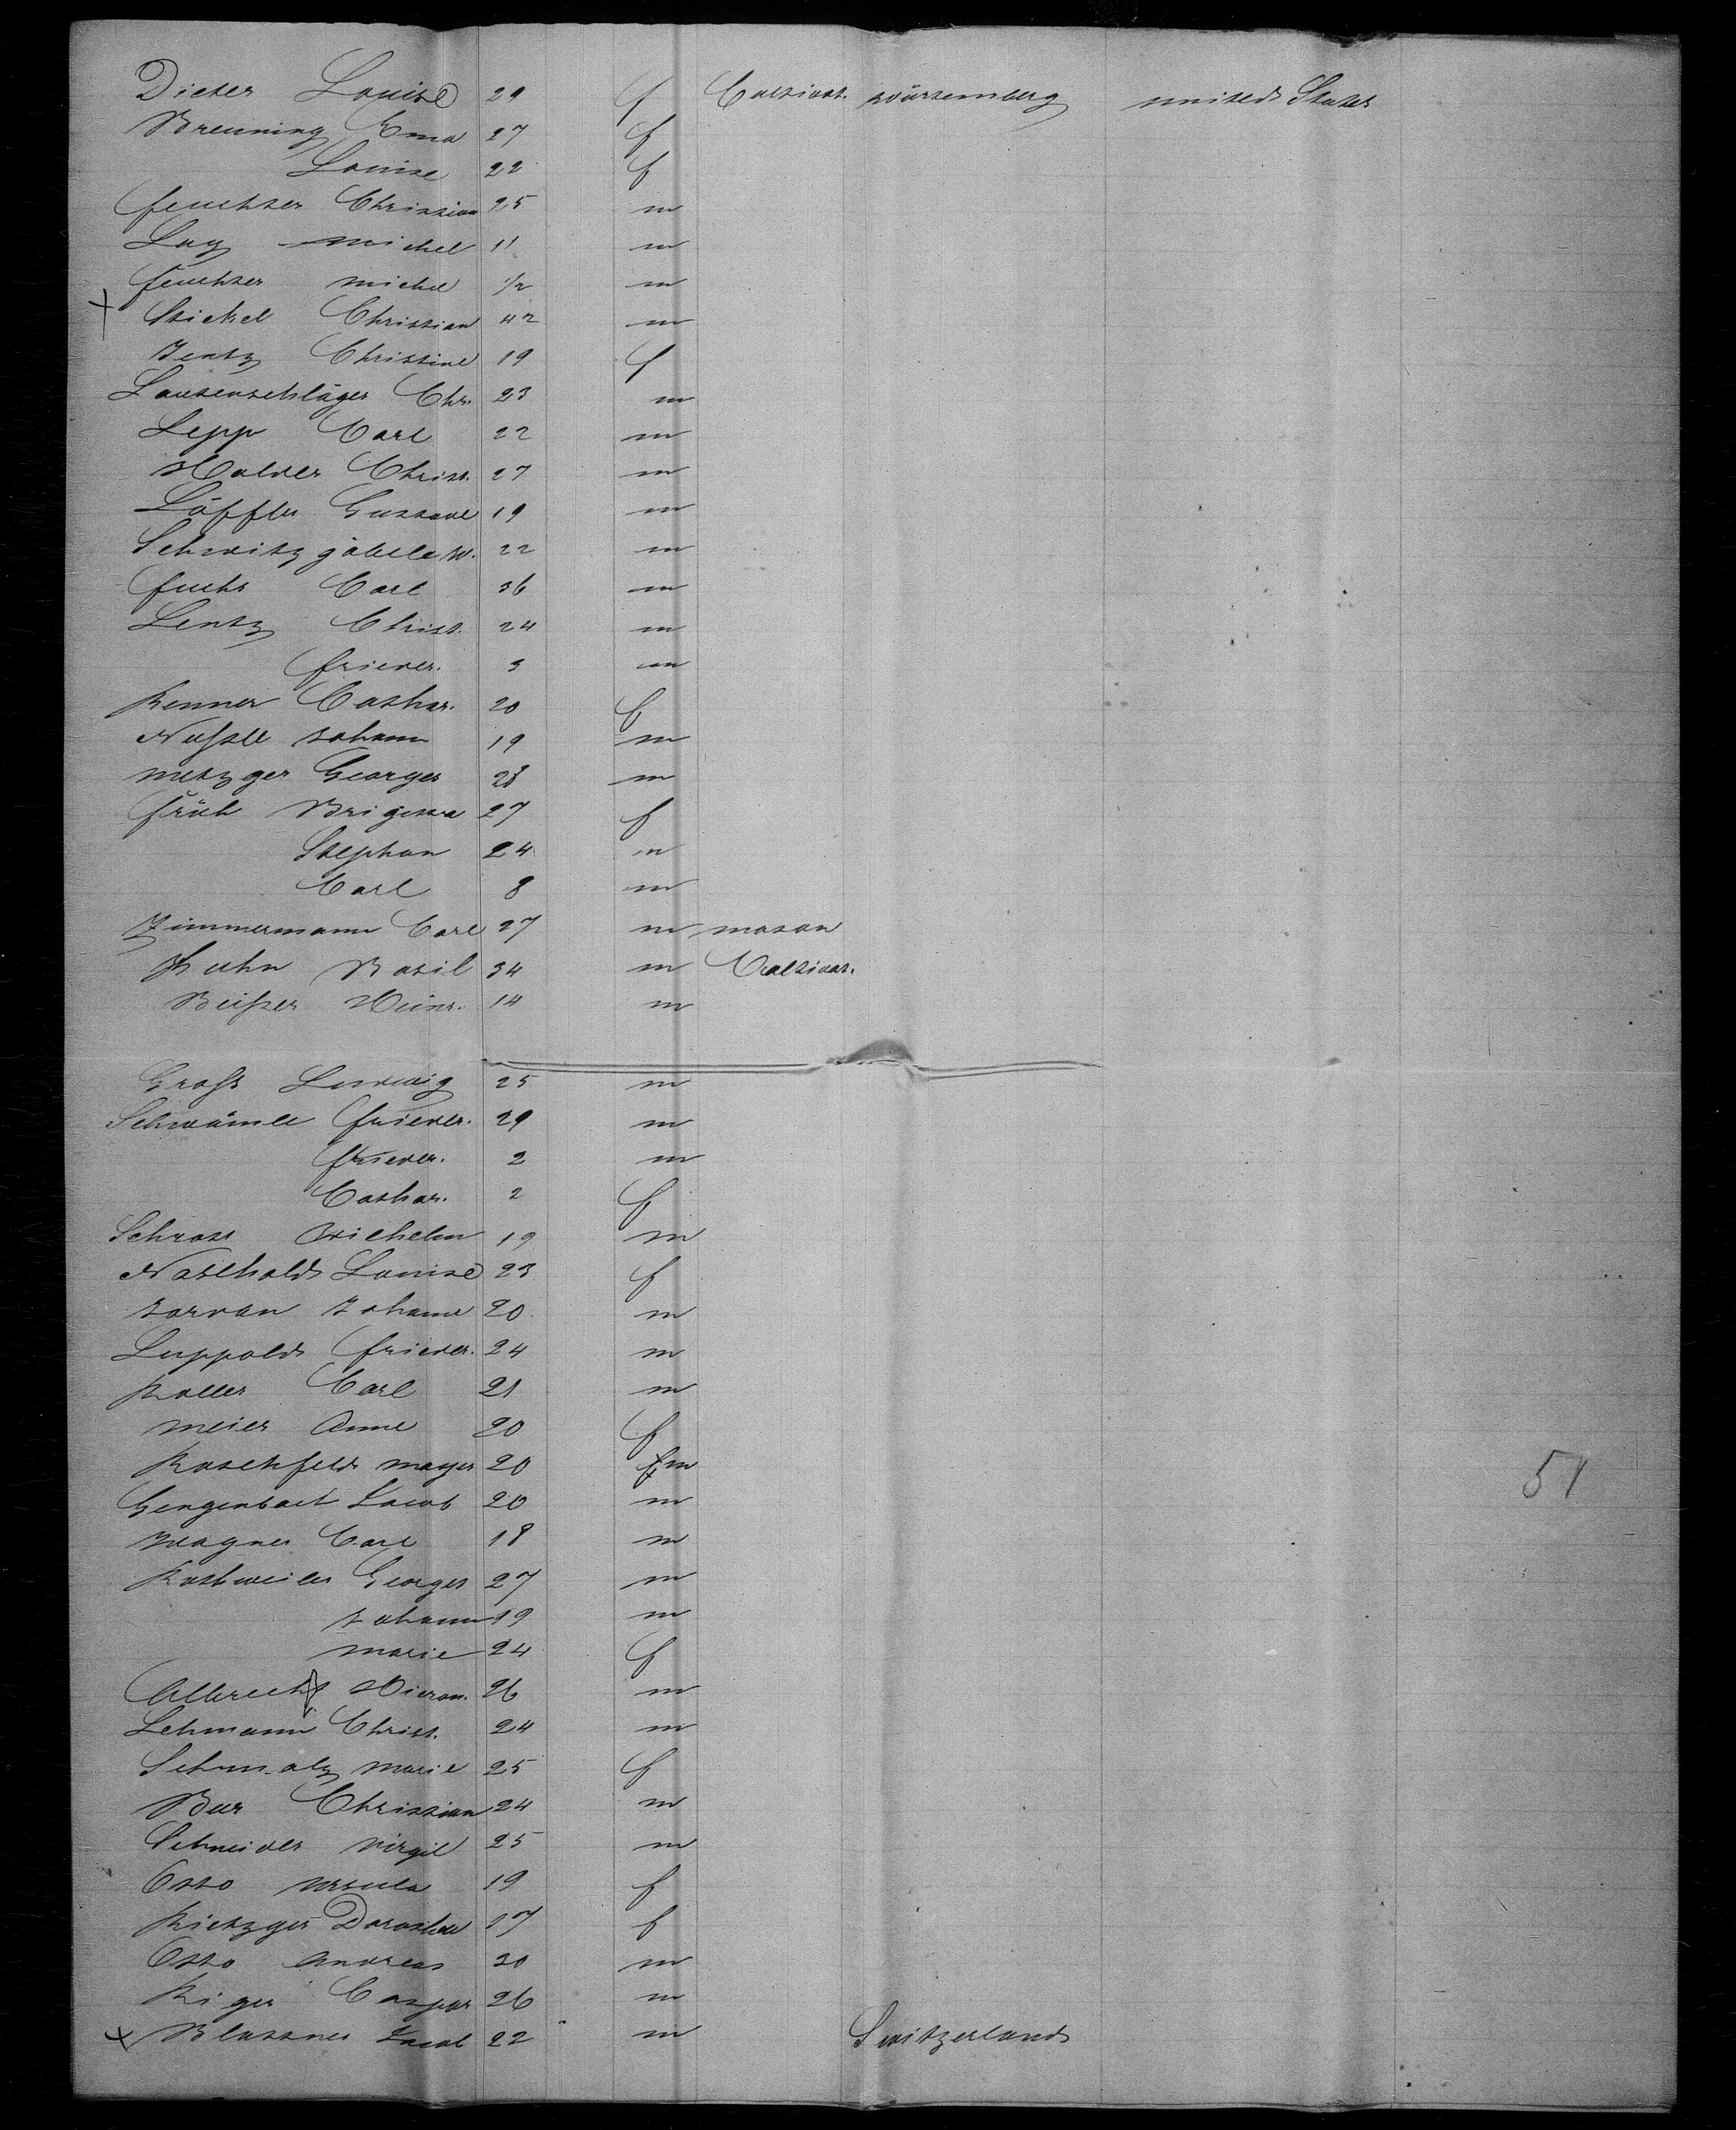 Dieter Louise 29 f Cultivat. Würtemberg united States
Breuning Ema 27 f
Louise 22 f
Feuchter Christian 25 m
Lay Michel 11 m
Feuchter Michel 1/2 m
x Stickel Christian 42 m
Jentz Christine 19 f
Lautenschläger Chr. 23 m
Lepp Carl 22 m
Holder Christ. 27 m
Löffler Gustave 19 m
Schwitzgäbele W. 22 m
Fuchs Carl 36 m
Lentz Christ. 24 m
Frieder. 3 m
Renner Cathar. 20 f
Nufzle Johann 19 m
Metzger Georges 28 m
Früh Brigetta 27 f
Stephan 24 m
Carl 8 m
Zimmermann Carl 27 m mason
Huhn Basil 34 m Cultivat.
Beißer Heinr. 14 m
Groß Ludwig 25 m
Schwämle Frieder. 29 m
Frieder. 2 m
Cathar. 2 f
Schrott Wilhelm 19 m
Nasthold Louise 23 f
Jordan Johann 20 m
Luppold Frieder. 24 m
Koller Carl 21 m
Meier Anne 20 f
Roschfeld Mayer 20 m
Gengenbach Jacob 20 m
Wagner Carl 18 m
Rothweiler Georges 27 m
Johann 19 m
Marie 24 f
Albrecht Hieron. 26 m
Lehmann Christ. 24 m
Schmalz Marie 25 f
Bur Christian 24 m
Schneider Virgil 25 m
Otto Ursula 19 f
Rietzger Dorothee 27 f
Otto Andreas 30 m
Riger Caspar 26 m
x Blattner Jacob 22 m Switzerland
51